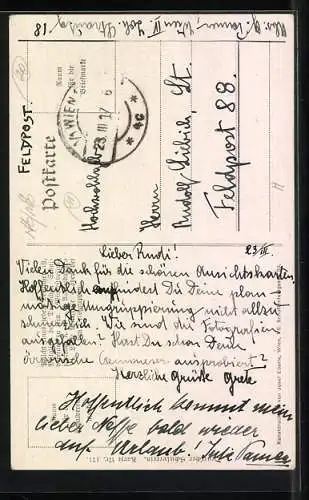 FELDPOST.
Postkarte
Raum
für die
Briefmarke
WIEN
23 III 17 6
* 4c *
Hochwohlgeb.
Herrn
Rudolf Liebich, Lt.
Feldpost 88.
23 III.
Lieber Rudi!
Vielen Dank für die schönen Ansichtskarten
Hoffentlich empfindest Du Deine plan-
mäßige Umgruppierung nicht allzu
schmerzlich. Wie sind die Fotografien
ausgefallen? Hast Du schon Deine
ausprobiert?
Herzliche Grüße Grete
Hoffentlich kommt mein
lieber Neffe bald wieder
auf Urlaub!
Karte Nr. 171.